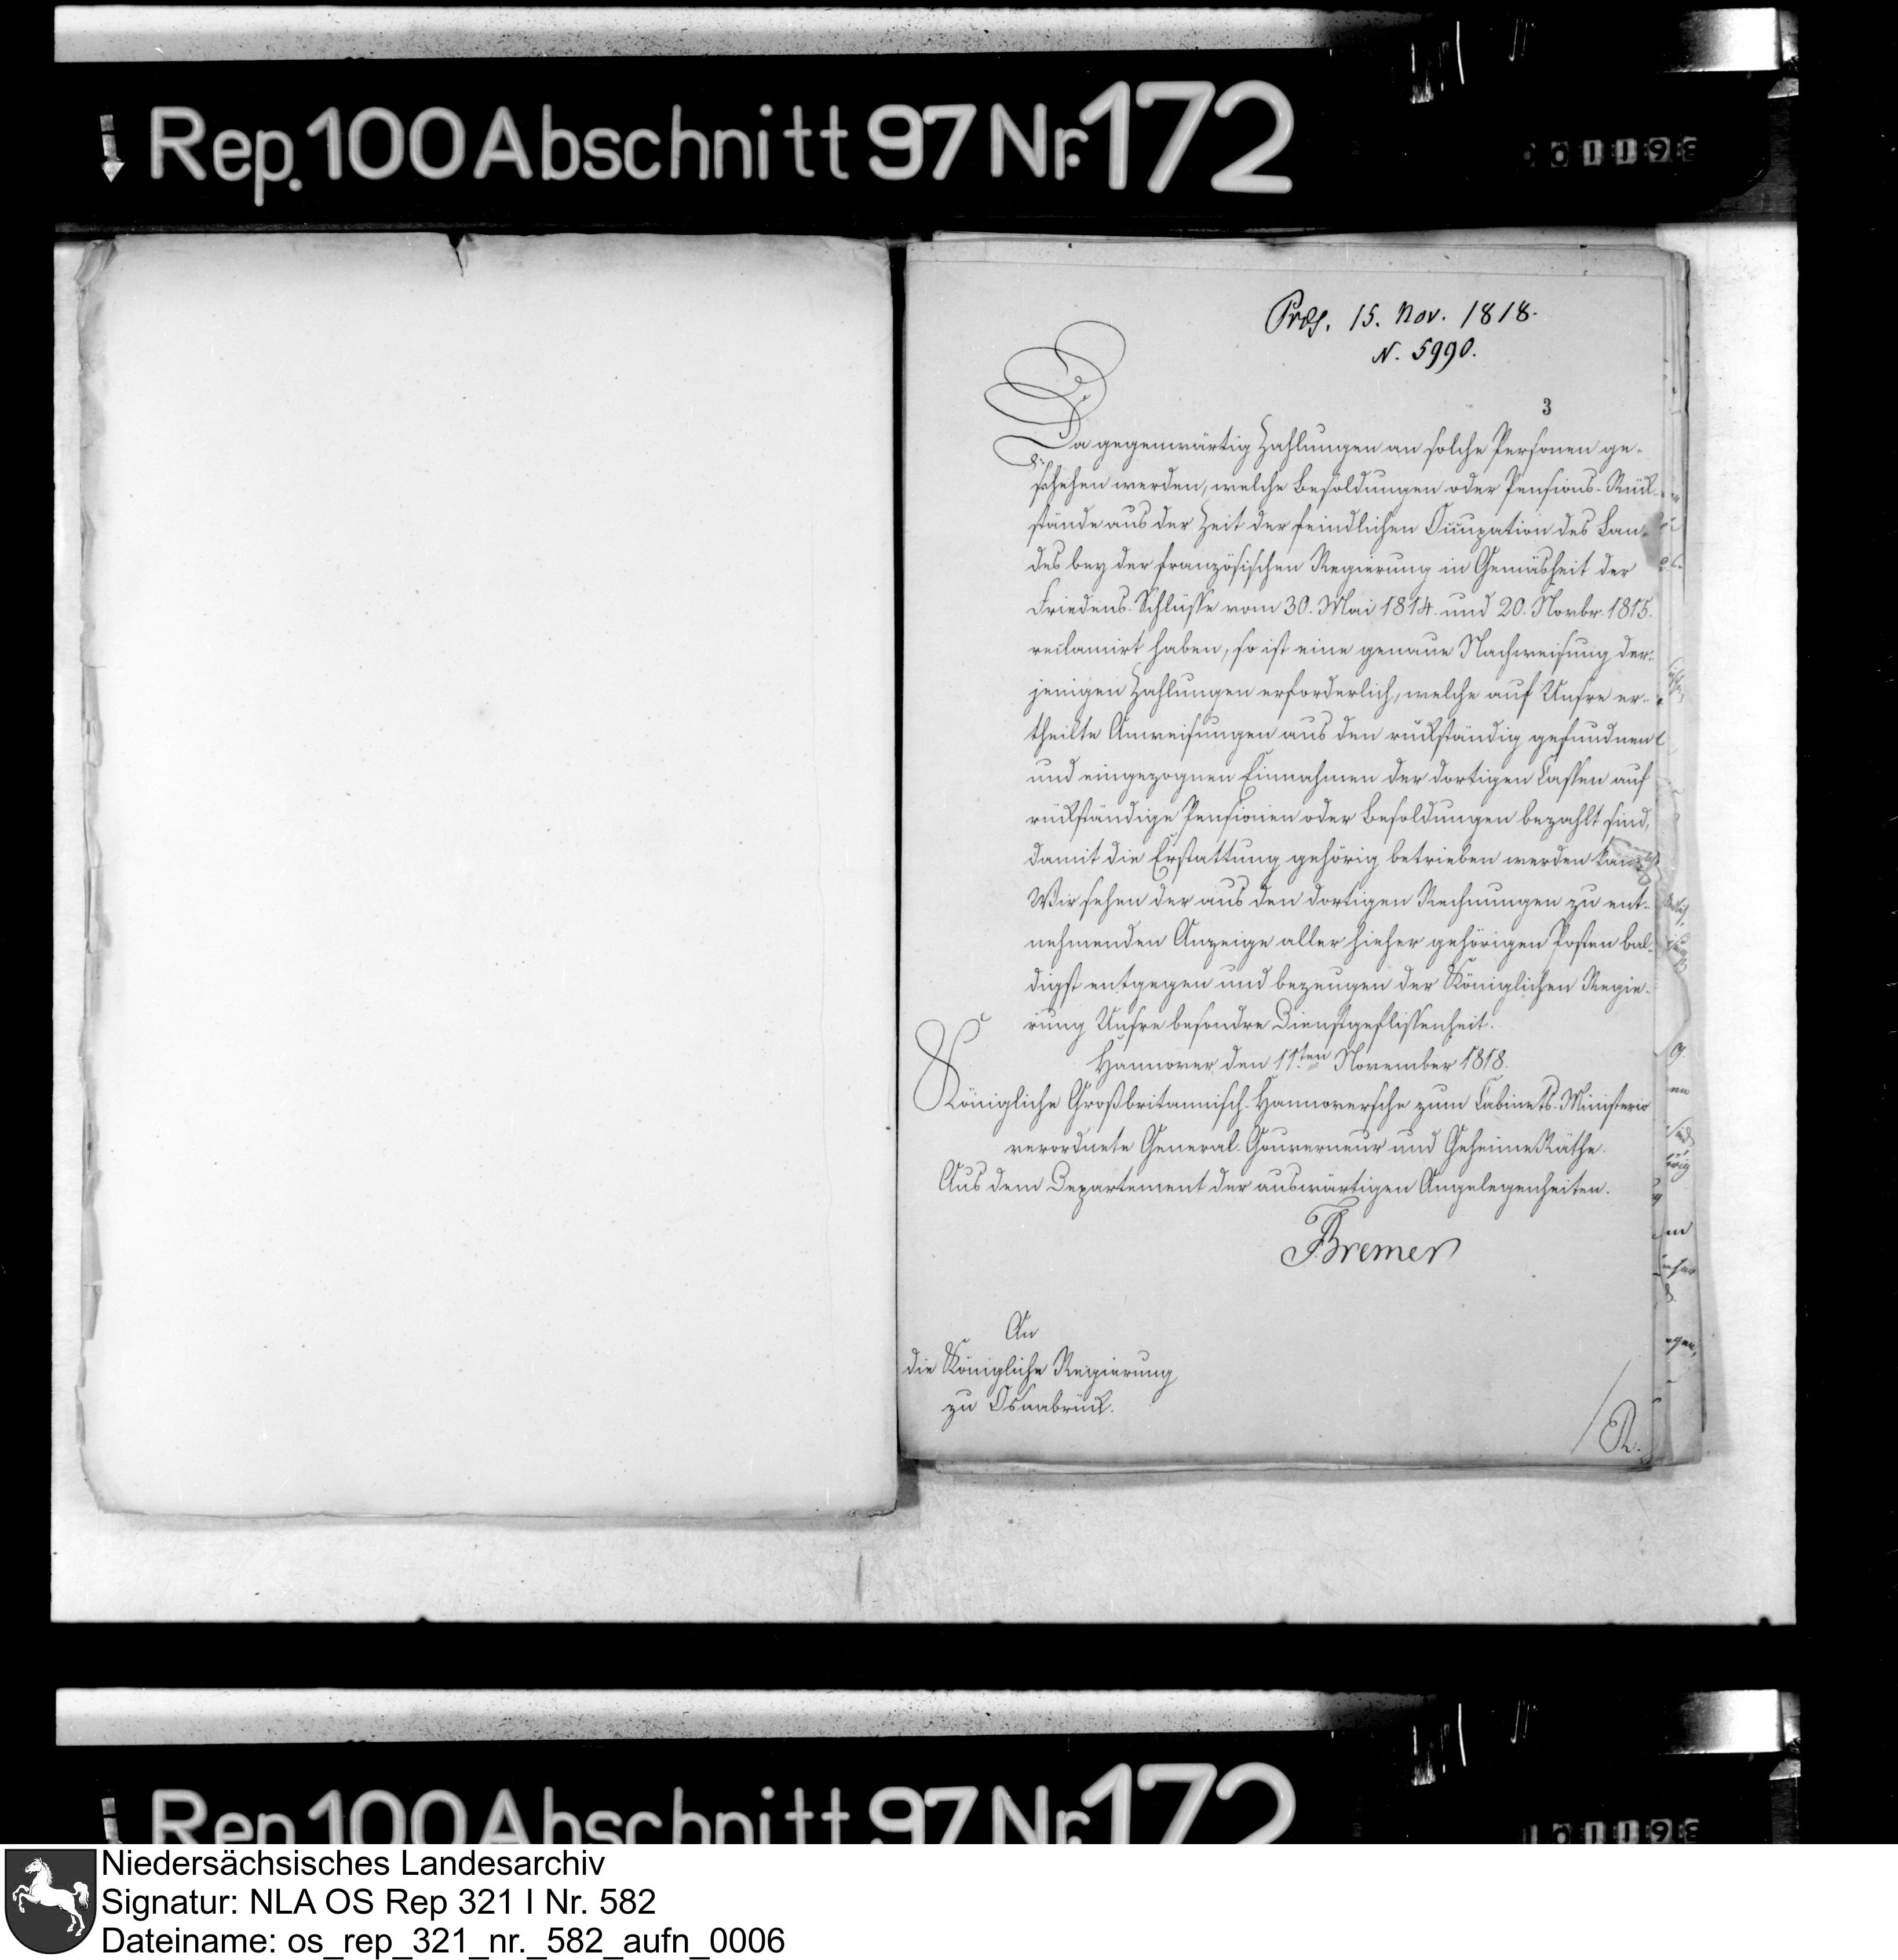 Rep. 100 Abschnitt 97 Nr. 172
Präs. 15. Nov. 1818.
N. 5990.
3
Da gegenwärtig Zahlungen an solche Personen ge-
schehen werden, welche Besoldungen oder Pensions-Rük-
stände aus der Zeit der feindlichen Occupation des Lan-
des bey der französischen Regierung in Gemäsheit der
Friedens-Schlüsse vom 30. Mai 1814. und 20. Novbr. 1815.
reclamirt haben, so ist eine genaue Nachweisung der-
jenigen Zahlungen erforderlich, welche auf Unsre er-
theilte Anweisungen aus den rükständig gefundnen
und eingezognen Einnahmen der dortigen Cassen auf
rükständige Pensionen oder Besoldungen bezahlt sind,
damit die Erstattung gehörig betrieben werden kann.
Wir sehen der aus den dortigen Rechnungen zu ent-
nehmenden Anzeige aller hieher gehörigen Posten bal-
digst entgegen und bezeugen der Königlichen Regie-
rung Unsre besondre Dienstgeflissenheit.
Hannover den 11ten November 1818.
Königliche Großbritannisch-Hannoversche zum Cabinets-Ministerio
verordnete General-Gouverneur und Geheime Räthe.
Aus dem Departement der auswärtigen Angelegenheiten.
Bremer
An
die Königliche Regierung
zu Osnabrück.
R.
Rep. 100 Abschnitt 97 Nr. 172
Niedersächsisches Landesarchiv
Signatur: NLA OS Rep 321 I Nr. 582
Dateiname: os_rep_321_nr._582_aufn_0006